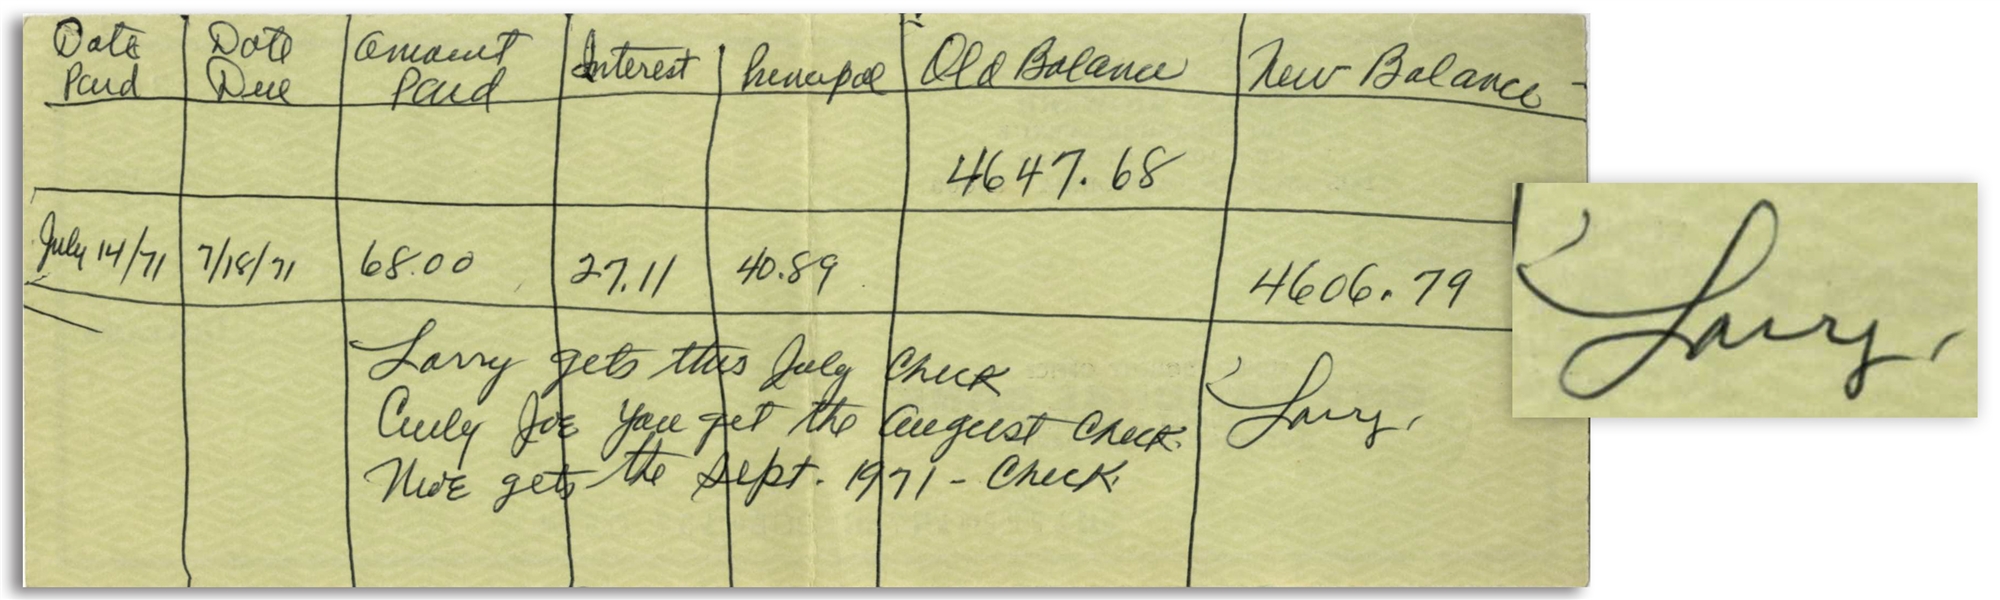 Date Paid Date Due Amount Paid Interest Principal Old Balance New Balance
4647.68
July 14/71 7/18/71 68.00 27.11 40.89 4606.79
Larry gets this July Check
Curly Joe You get the August Check.
Moe gets the Sept. 1971 - Check.
Larry,
Larry,